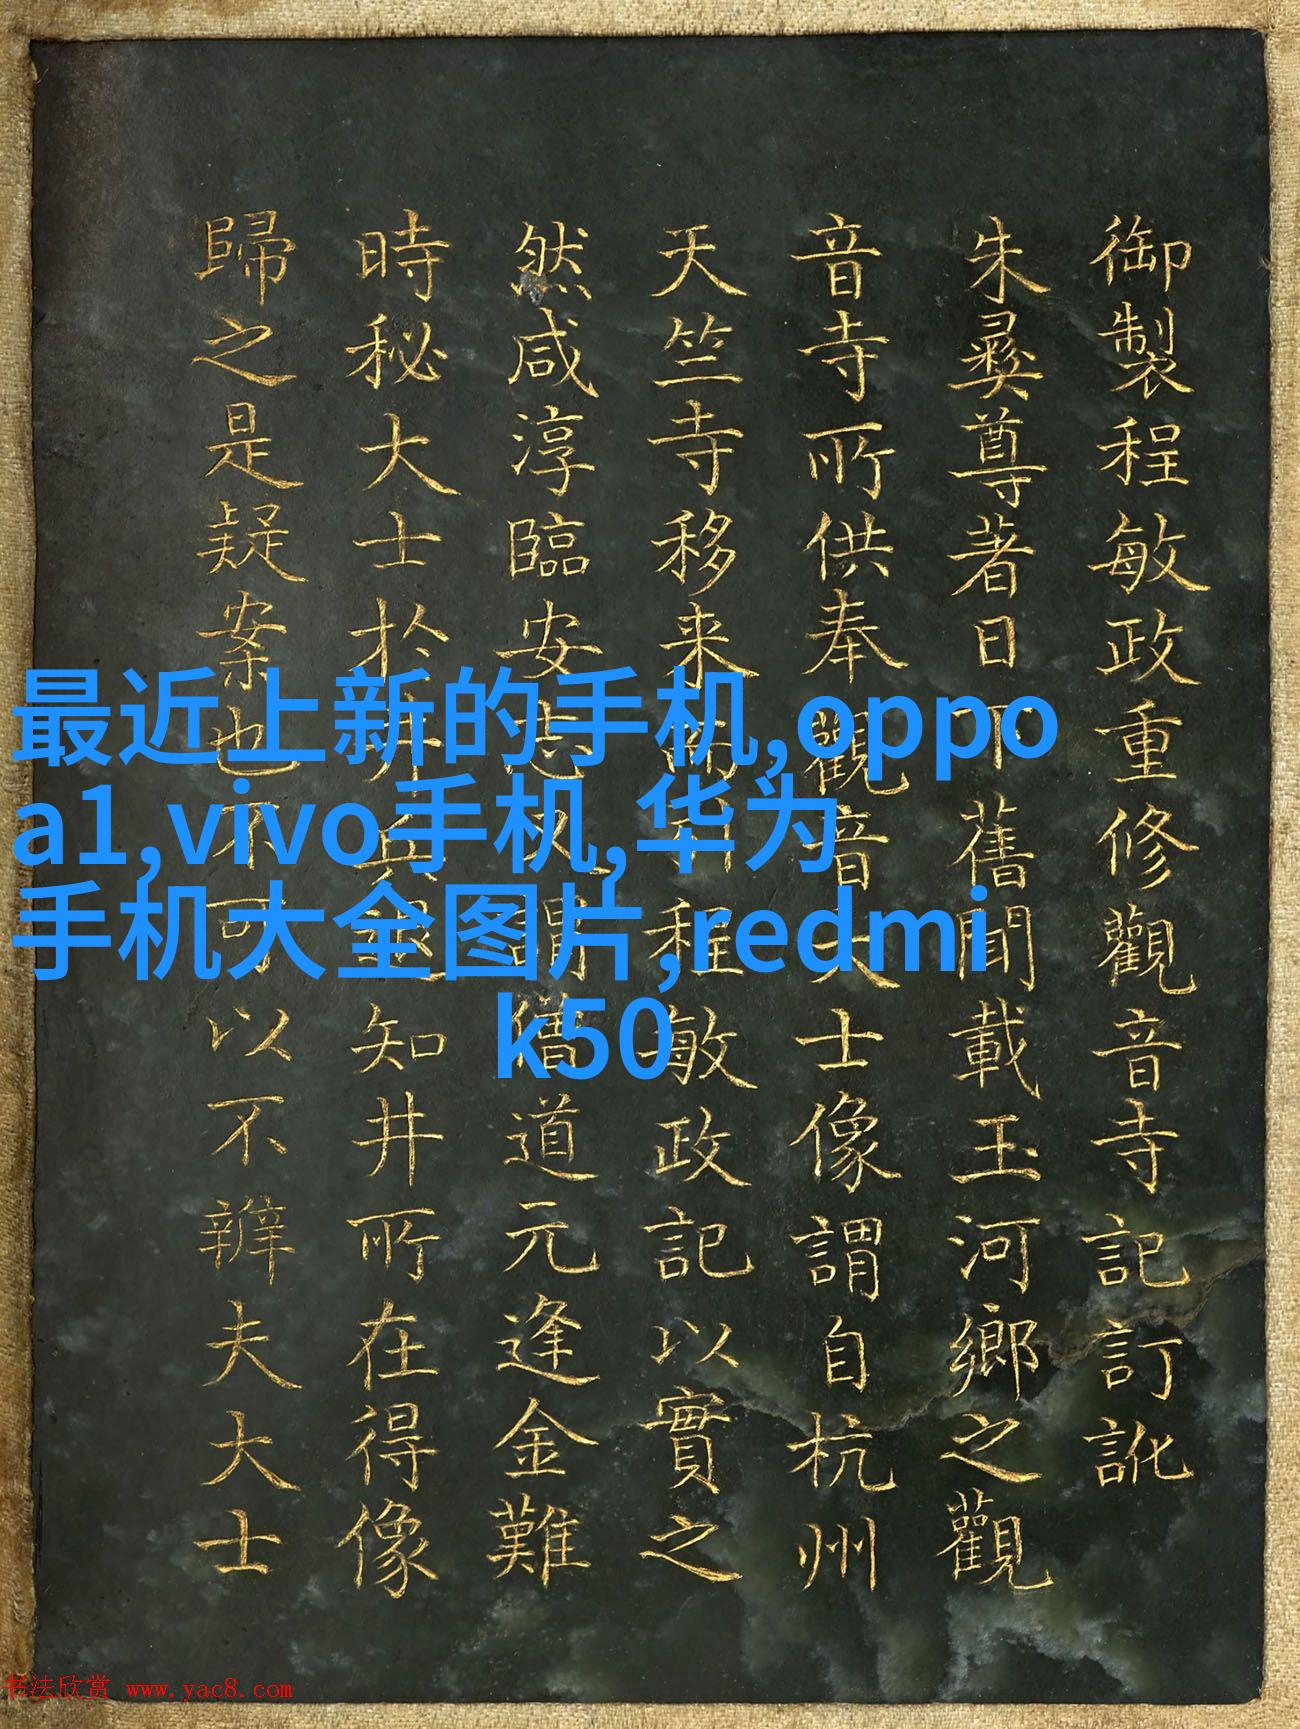 御製程敏政重修觀音寺記訂訛
朱彛尊著日下舊聞載玉河鄉之觀
音寺所供奉觀音大士像謂自杭州
天竺寺移来程敏政記以實之
然咸淳臨安志又謂僧道元逢金難
時秘大士於井兵退知井所在得像
歸之是疑案也不可以不辨夫大士
最近上新的手机,oppo
a1,vivo手机,华为
手机大全图片,redmi
k50
书法欣赏 www.yac8.com